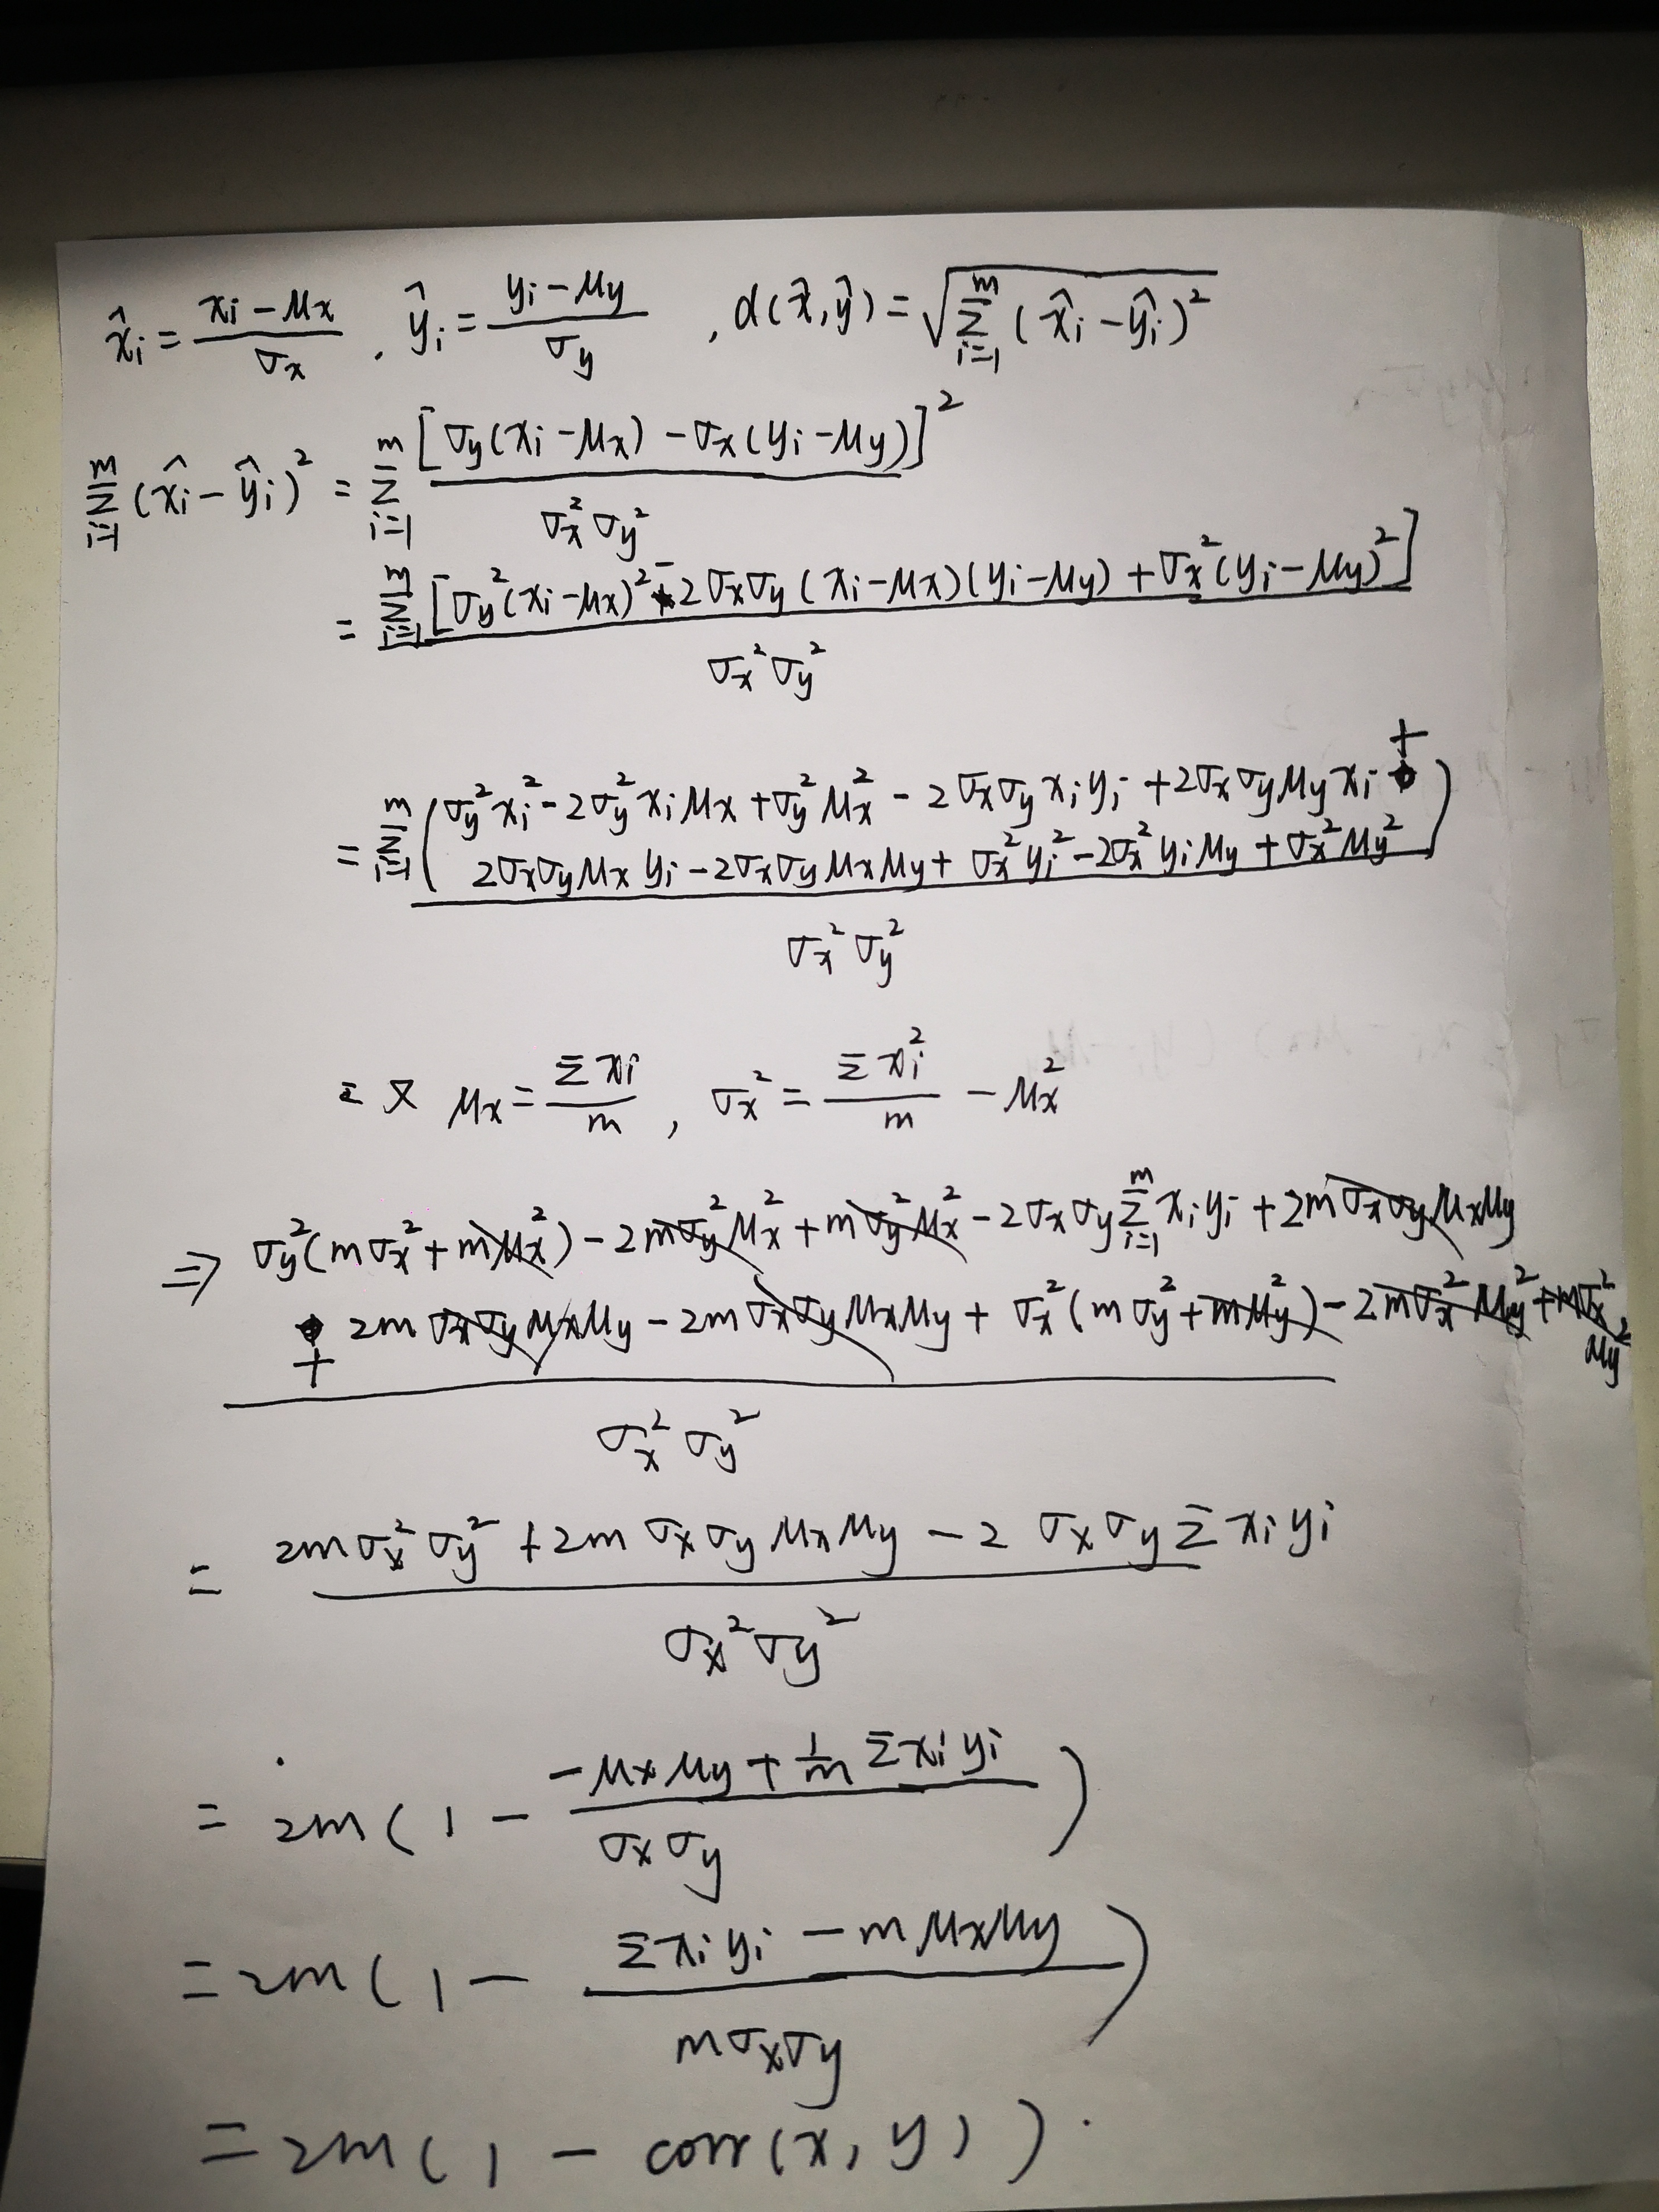 x̂ᵢ = (xᵢ − μx)/σx , ŷᵢ = (yᵢ − μy)/σy , d(x̂, ŷ) = √(Σᵢ₌₁ᵐ (x̂ᵢ − ŷᵢ)²)
Σᵢ₌₁ᵐ (x̂ᵢ − ŷᵢ)² = Σᵢ₌₁ᵐ [σy(xᵢ − μx) − σx(yᵢ − μy)]² / σx²σy²
= Σᵢ₌₁ᵐ [σy²(xᵢ − μx)² − 2σxσy(xᵢ − μx)(yᵢ − μy) + σx²(yᵢ − μy)²] / σx²σy²
= Σᵢ₌₁ᵐ (σy²xᵢ² − 2σy²xᵢμx + σy²μx² − 2σxσyxᵢyᵢ + 2σxσyμyxᵢ +
2σxσyμxyᵢ − 2σxσyμxμy + σx²yᵢ² − 2σx²yᵢμy + σx²μy²) / σx²σy²
又 μx = Σxᵢ/m , σx² = Σxᵢ²/m − μx²
⇒ σy²(mσx² + mμx²) − 2mσy²μx² + mσy²μx² − 2σxσyΣᵢ₌₁ᵐxᵢyᵢ + 2mσxσyμxμy
+ 2mσxσyμxμy − 2mσxσyμxμy + σx²(mσy² + mμy²) − 2mσx²μy² + mσx²μy²
/ σx²σy²
= (2mσx²σy² + 2mσxσyμxμy − 2σxσyΣxᵢyᵢ) / σx²σy²
= 2m(1 − (−μxμy + 1/m Σxᵢyᵢ)/σxσy)
= 2m(1 − (Σxᵢyᵢ − mμxμy)/mσxσy)
= 2m(1 − corr(x, y)).